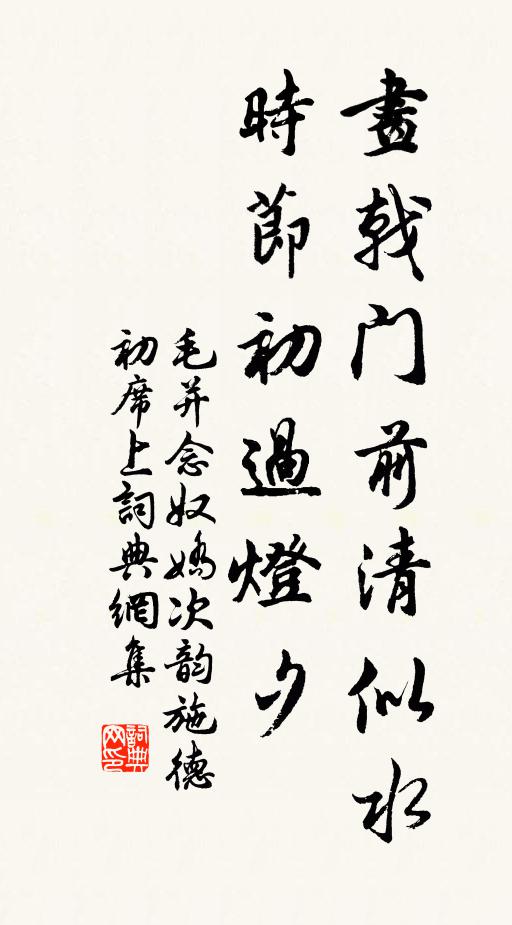 畫戟門前清似水
時節初過燈夕
毛并念奴嬌次韵施德
初席上詞典網集
詞典
网印